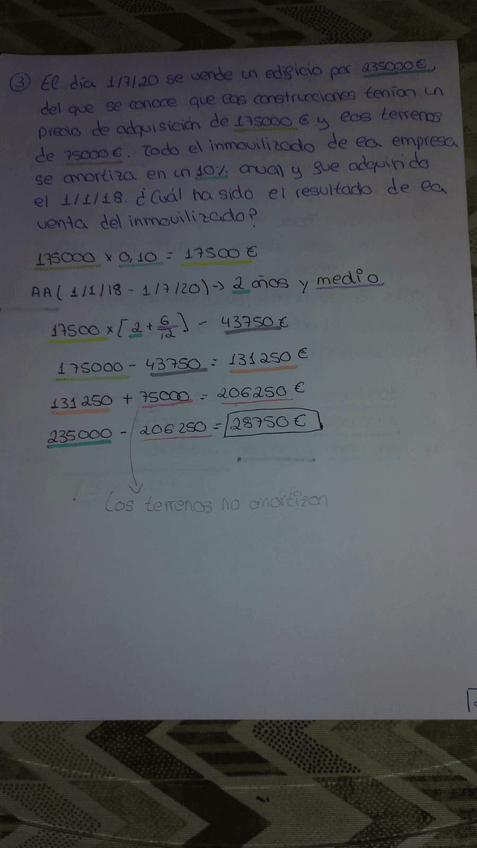 ③ El día 1/7/20 se vende un edificio por 235000€,
del que se conoce que las construcciones tenían un
precio de adquisición de 175000 € y los terrenos
de 75000€. Todo el inmovilizado de la empresa
se amortiza en un 10% anual y fue adquirido
el 1/1/18. ¿Cuál ha sido el resultado de la
venta del inmovilizado?
175000 x 0,10 = 17500 €
AA (1/1/18 - 1/7/20) → 2 años y medio
17500 x [2 + 6/12] - 43750 €
175000 - 43750 = 131250 €
131250 + 75000 = 206250 €
235000 - 206250 = 28750 €
Los terrenos no amortizan